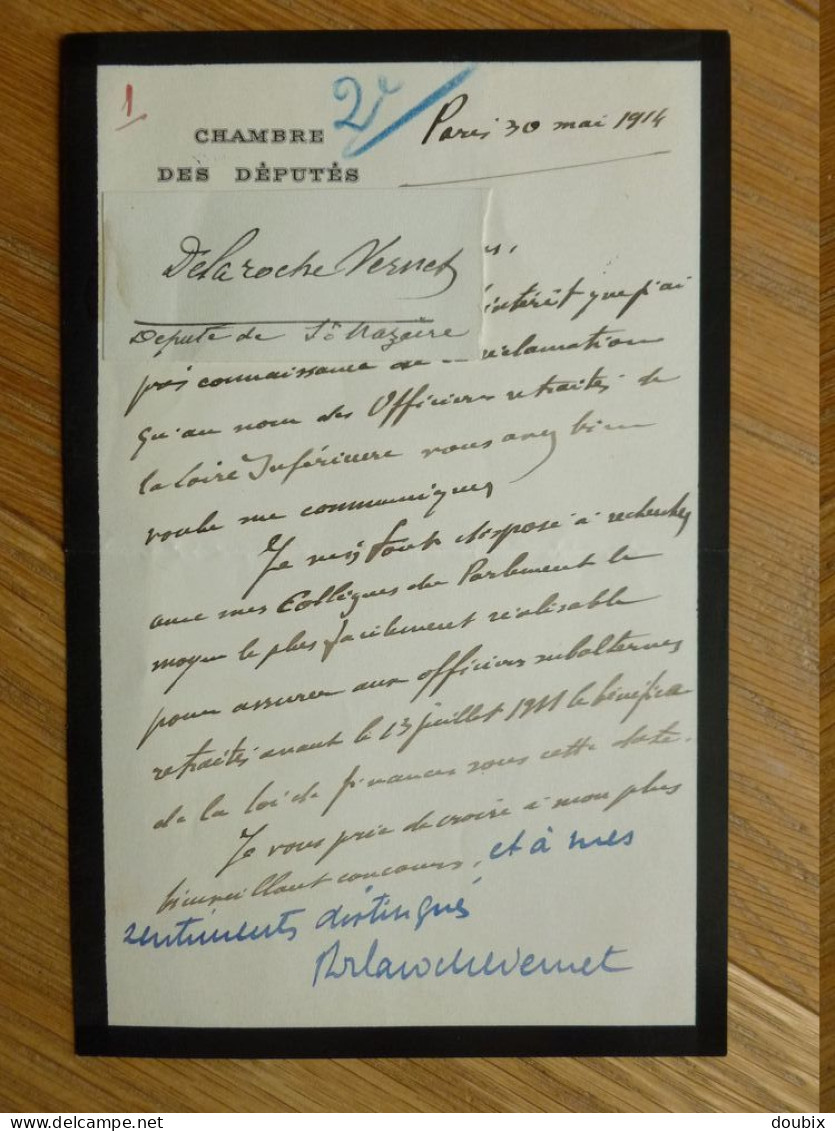 1
2e
CHAMBRE
DES DÉPUTÉS
Paris 30 mai 1914
Delaroche Vernet
Député de St Nazaire
intérêt que j'ai
pris connaissance de la réclamation
qu'au nom des Officiers retraités de
la Loire Inférieure vous avez bien
voulu me communiquer
Je suis tout disposé à rechercher
avec mes Collègues du Parlement le
moyen le plus facilement réalisable
pour assurer aux officiers subalternes
retraités avant le 13 juillet 1911 le bénéfice
de la loi de finances sous cette date.
Je vous prie de croire à mon plus
bienveillant concours, et à mes
sentiments distingués
Delaroche Vernet
delcampe.net
doubix